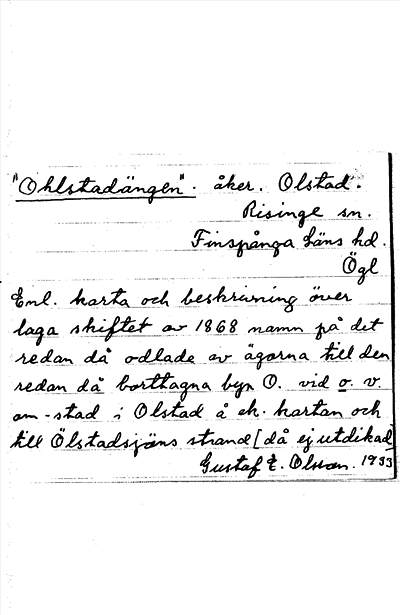 "Ohlstadängen". åker. Olstad.
Risinge sn.
Finspånga läns hd.
Ögl
Enl. karta och beskrivning över
laga skiftet av 1868 namn på det
redan då odlade av ägorna till den
redan då borttagna byn O. vid o. v.
om -stad i Olstad å ek. kartan och
till Ölstadsjöns strand [då ej utdikad
Gustaf E. Olsson. 1933